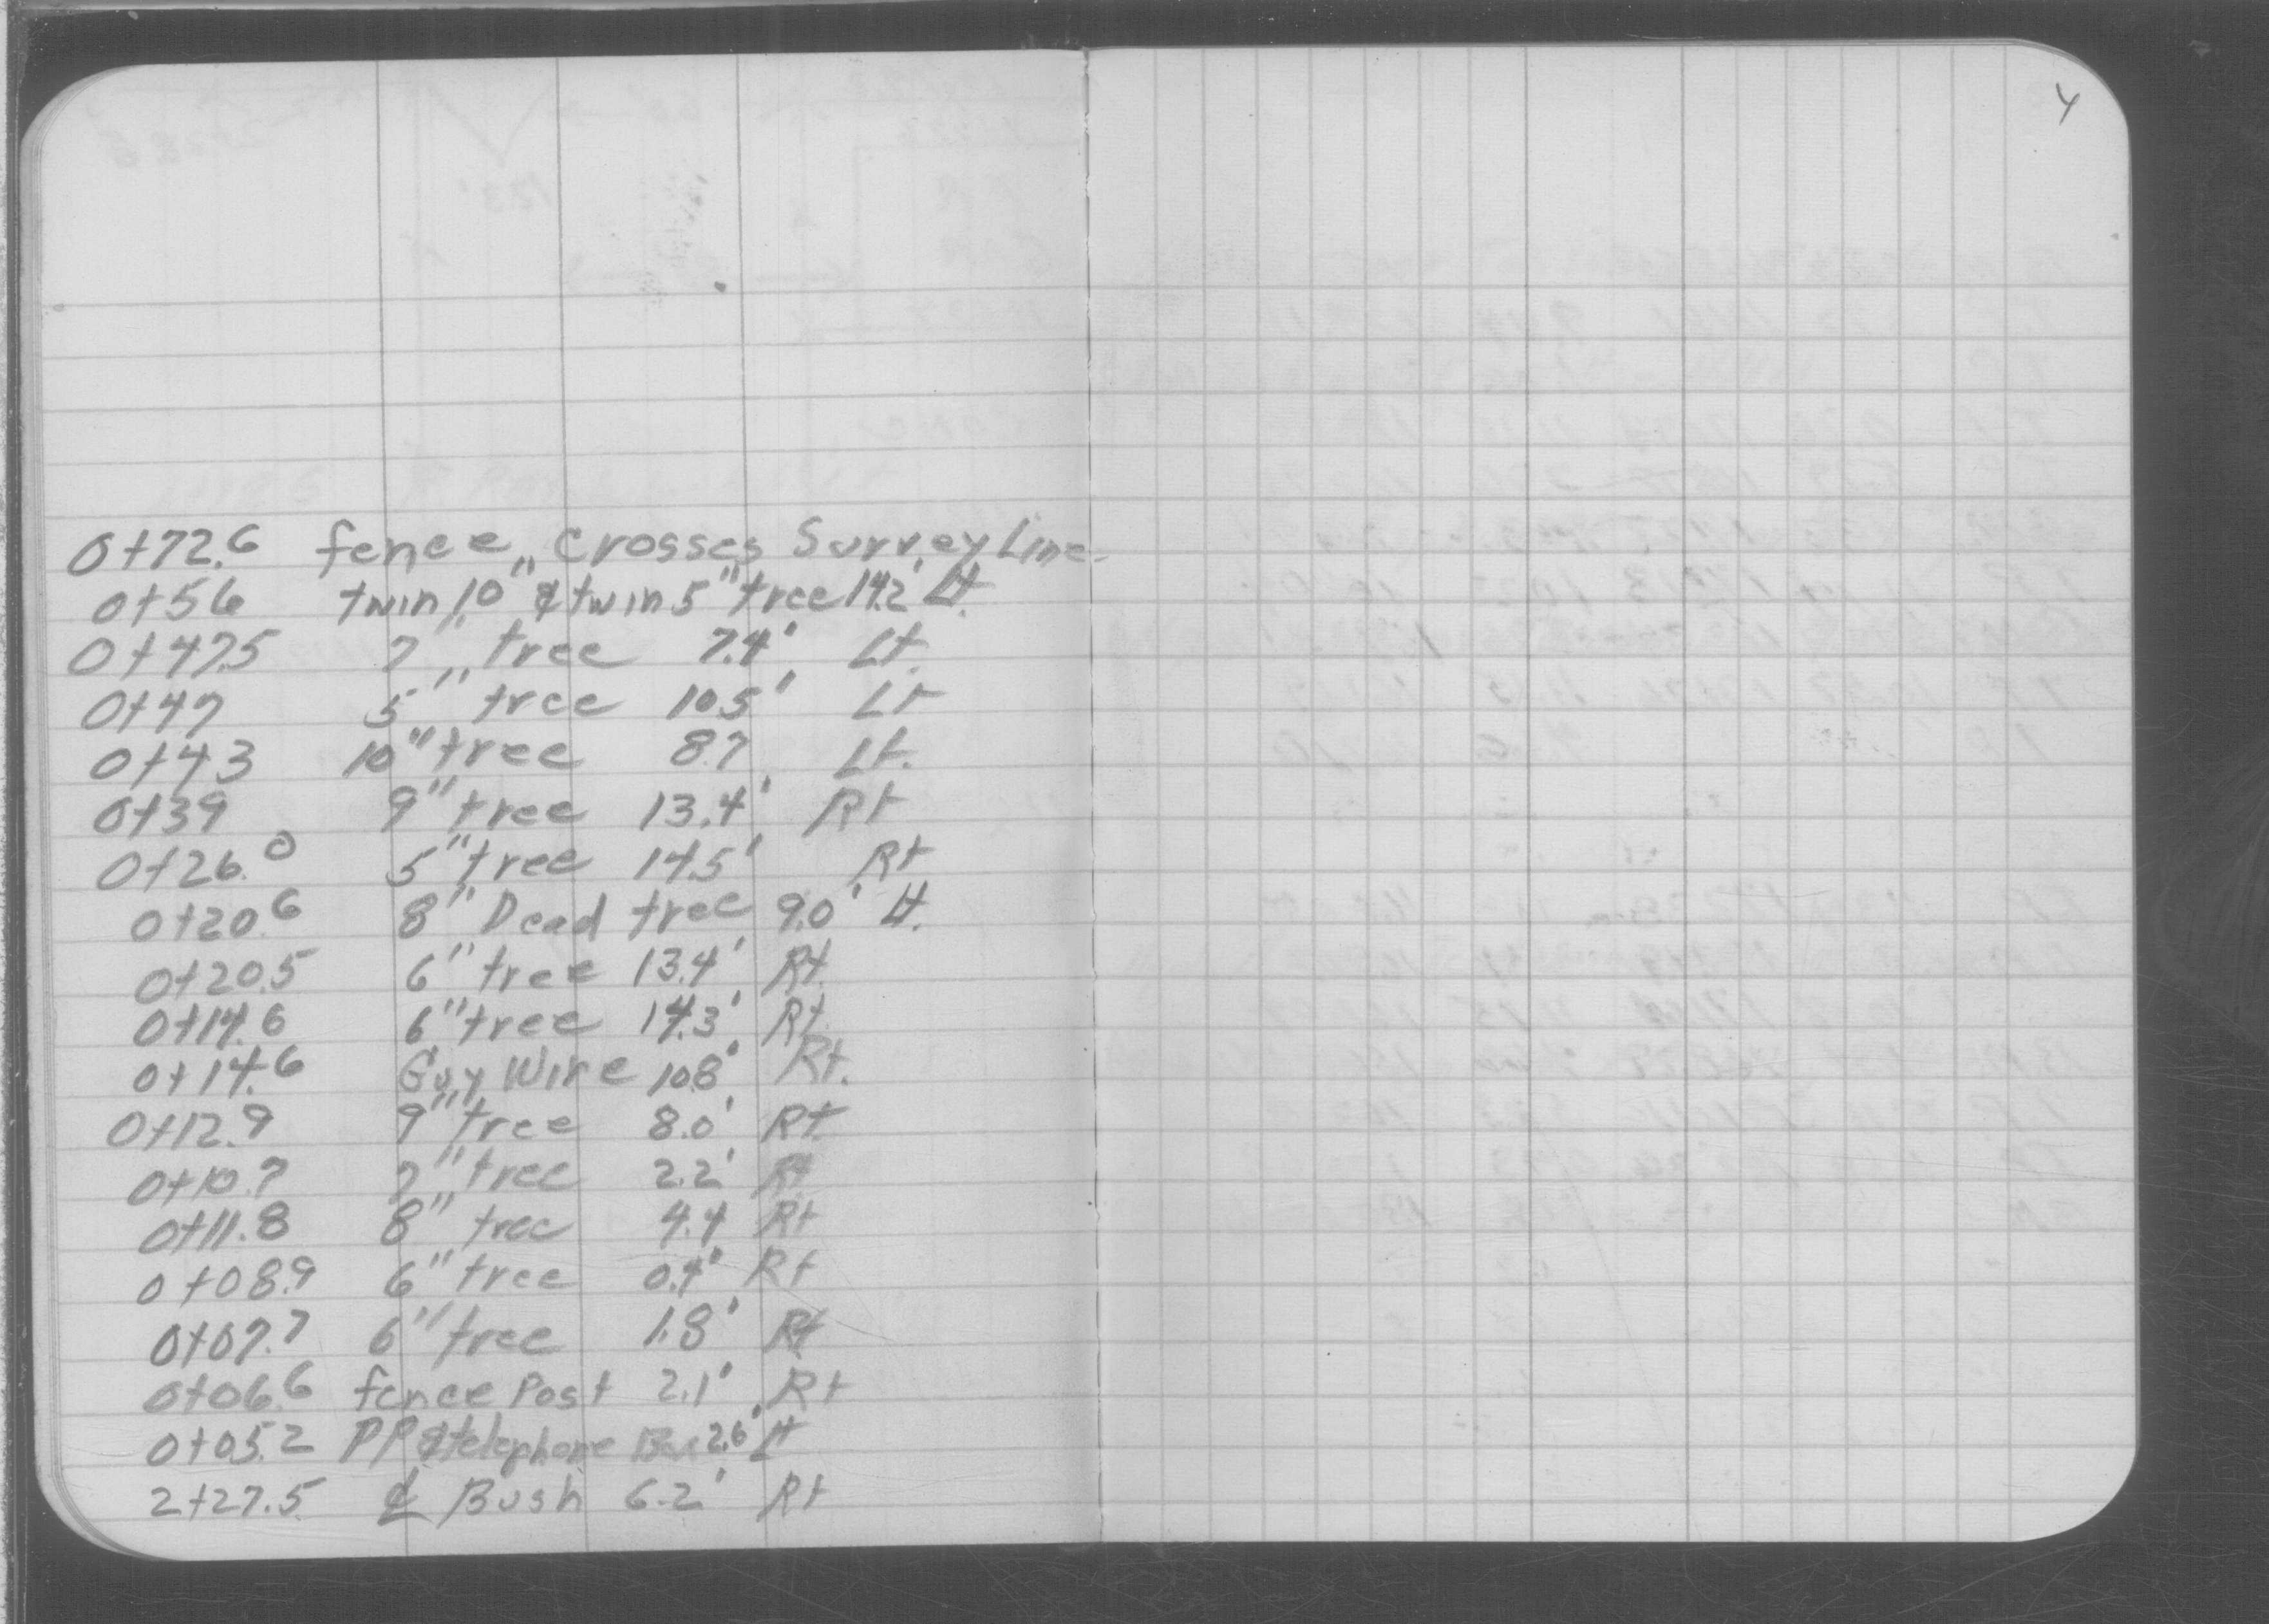 4
0+72.6 fence crosses Survey Line
0+56 twin 10" & twin 5" tree 14.2' Lt.
0+47.5 7" tree 7.4' Lt.
0+47 5" tree 10.5' Lt
0+43 10" tree 8.7 Lt.
0+39 9" tree 13.4' Rt
0+26.0 5" tree 14.5' Rt
0+20.6 8" Dead tree 9.0' Lt.
0+20.5 6" tree 13.4' Rt.
0+14.6 6" tree 14.3' Rt.
0+14.6 Guy Wire 10.8' Rt.
0+12.9 9" tree 8.0' Rt.
0+10.7 7" tree 2.2' Rt
0+11.8 8" tree 4.4 Rt
0+08.9 6" tree 0.4' Rt
0+07.7 6" tree 1.8' Rt
0+06.6 fence Post 2.1' Rt
0+05.2 PP & telephone 2.6' Lt
2+27.5 ℄ Bush 6.2' Rt